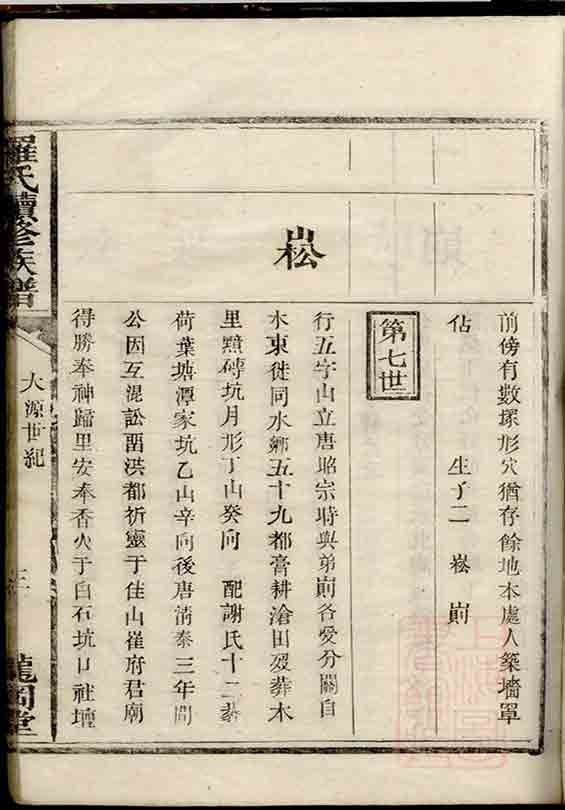 前傍有數塚形穴猶存餘地本處人築墻罩
佔 生子二 崧 崱
第七世
崧
行五字山立唐昭宗時與弟崱各爱分關自
木東徙同水鄉五十九都膏耕滄田歿葬木
里㸃磚坑月形丁山癸向 配謝氏十二葬
荷葉塘潭家坑乙山辛向後唐清泰三年間
公因互混訟畱洪都祈靈于佳山崔府君廟
得勝奉神歸里安奉香火于白石坑口社壇
羅氏續修族譜
大源世紀
三
龍岡堂